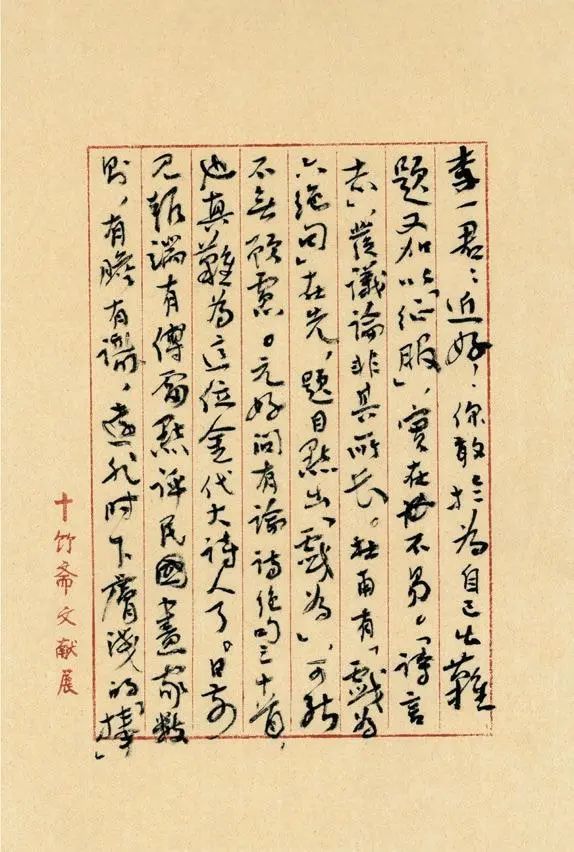 李一君：近好，你敢于为自己出難
題又加以「征服」，實在也不易。「詩言
志」，發議論非其所长。杜甫有「戲為
六绝句」在先，題目點出「戲為」，可能
不無顧慮。元好问有論詩绝句三十首，
也真難為這位金代大詩人了。日前
見報端有傅雷點評民國畫家數
則，有膽有識，遠非时下膚浅的「捧」
十竹斋文献展